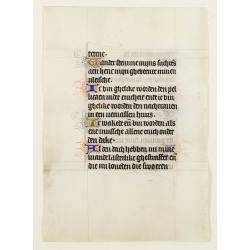 Vander stemme mijns suchtes
aen hene mijn ghebeente minen
vleische
Ic bin ghelike worden den pel
licaen inder enicheit en ic bin
ghelike worden den nachtrauen
in een huus
Ic wakede en bin worden als
ene mussche allene onder
den dake
Al den dach hebben mi mine
viande lasterlike en
die mi loueden die swoeren